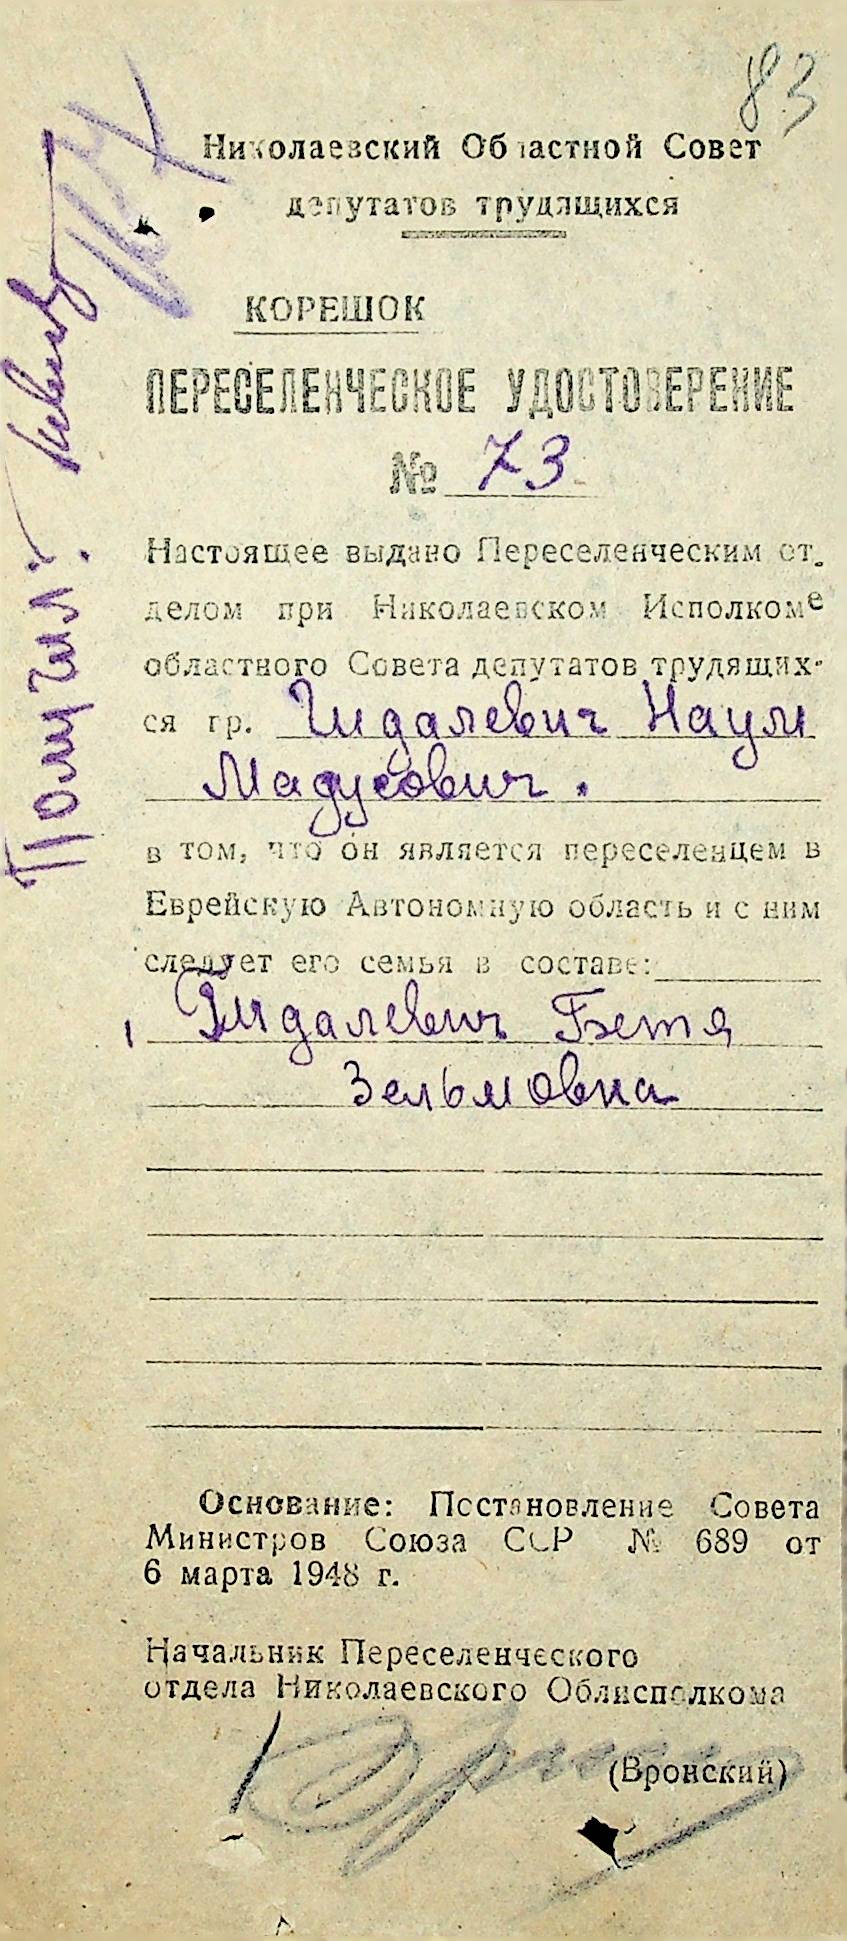 83
Николаевский Областной Совет
депутатов трудящихся
КОРЕШОК
ПЕРЕСЕЛЕНЧЕСКОЕ УДОСТОВЕРЕНИЕ
№ 73
Настоящее выдано Переселенческим от-
делом при Николаевском Исполкоме
областного Совета депутатов трудящих-
ся гр. Гидалевич Наум
Мадусович.
в том, что он является переселенцем в
Еврейскую Автономную область и с ним
следует его семья в составе:
1 Гидалевич Бетя
Зельмовна
Основание: Постановление Совета
Министров Союза ССР № 689 от
6 марта 1948 г.
Начальник Переселенческого
отдела Николаевского Облисполкома
(Вронский)
Получил: